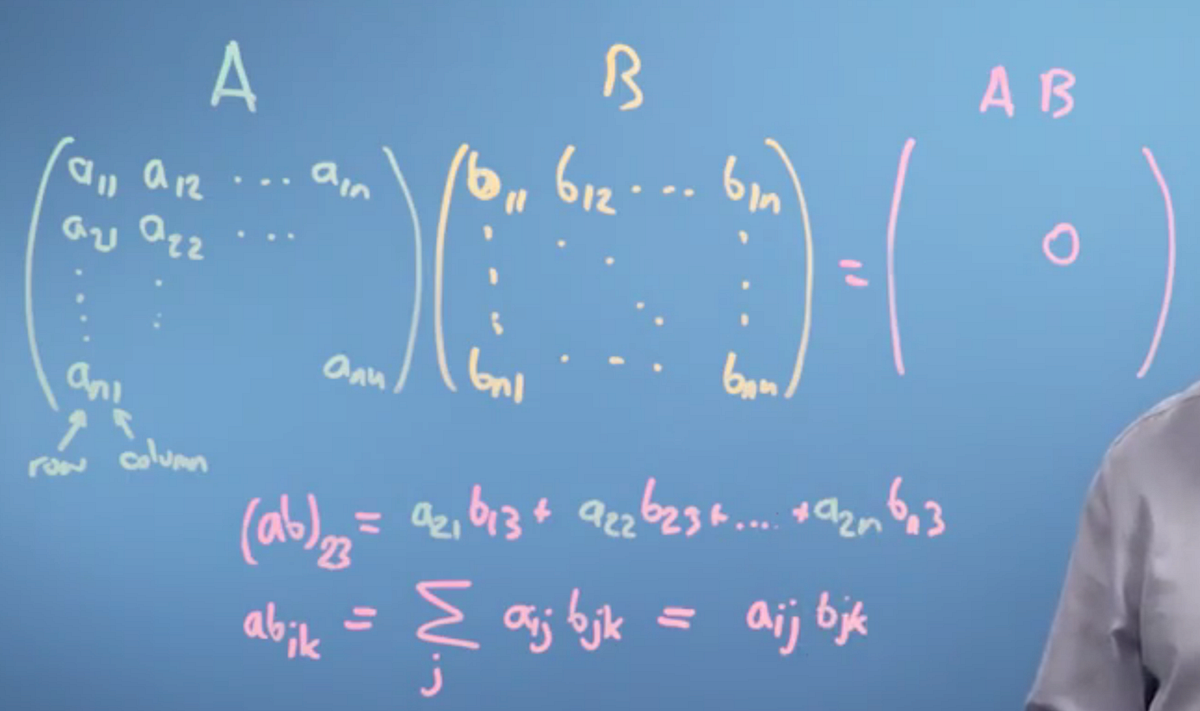 A B AB
( a₁₁ a₁₂ ... a₁ₙ ) ( b₁₁ b₁₂ ... b₁ₙ ) = ( O )
a₂₁ a₂₂ ...
aₙ₁ aₙₙ bₙ₁ ... bₙₙ
row column
(ab)₂₃ = a₂₁ b₁₃ + a₂₂ b₂₃ + .... + a₂ₙ bₙ₃
ab_ik = Σ_j a_ij b_jk = a_ij b_jk